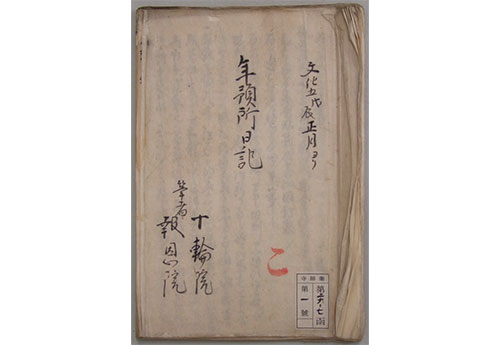 文化五戊辰正月ヨリ
年預所日記
十輪院
筆者
報恩院
二
第一號